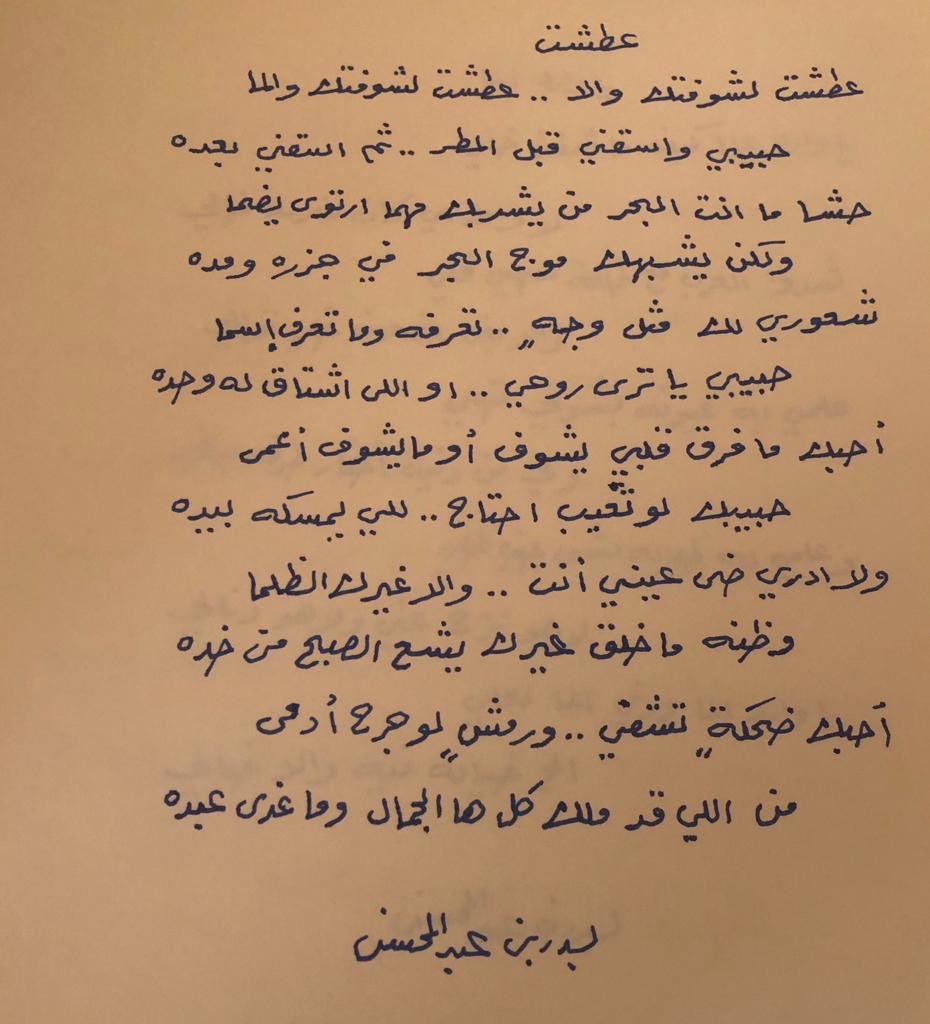 عطشت
عطشت لشوفتك والا .. عطشت لشوفتك والما
حبيبي واسقني قبل المطر .. ثم اسقني بعده
حشا ما انت البحر من يشربك مهما ارتوى يضما
ولكن يشبهك موج البحر في جزره ومده
شعوري لك مثل وجهٍ .. تعرفه وما تعرف إسما
حبيبي يا ترى روحي .. او اللى اشتاق له وحده
أحبك ما فرق قلبي يشوف أو مايشوف أعمى
حبيبك لو تغيب احتاج .. للي يمسكه بيده
ولا ادري ضى عيني أنت .. والا غيرك الظلما
وظنه ما خلق غيرك يشع الصبح من خده
أحبك ضحكةٍ تشفي .. ورمشٍ لو جرح أدمى
من اللي قد ملك كل ها الجمال وما غدى عبده
بدر بن عبدالمحسن